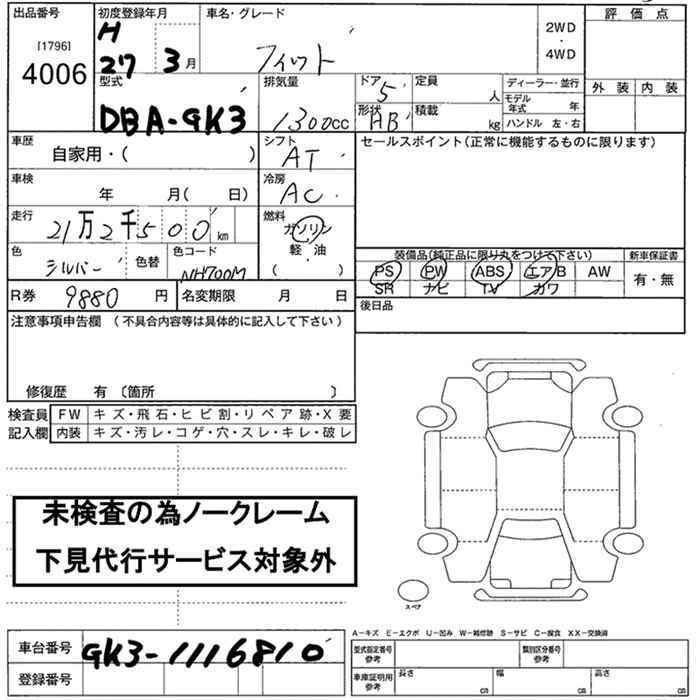 出品番号 初度登録年月 車名・グレード 評価点
[1796] H 2WD
4006 27 3月 フィット ・
4WD
型式 排気量 ドア 定員 ディーラー・並行 外装 内装
DBA-GK3 1300cc 5 人 モデル年式 年
形状 積載
HB kg ハンドル 左・右
車歴 シフト セールスポイント(正常に機能するものに限ります)
自家用・( ) AT
車検 冷房
年 月( 日) AC
走行 燃料
21万2千500km ガソリン
軽・油
( )
色 シルバー 色替 色コード NH700M
装備品(純正品に限り丸をつけて下さい) 新車保証書
PS PW ABS エアB AW 有・無
SR ナビ TV カワ
R券 9880 円 名変期限 月 日 後日品
注意事項申告欄(不具合内容等は具体的に記入して下さい)
修復歴 有〔箇所 〕
検査員 FW キズ・飛石・ヒビ割・リペア跡・X要
記入欄 内装 キズ・汚レ・コゲ・穴・スレ・キレ・破レ
未検査の為ノークレーム
下見代行サービス対象外
スペア
A-キズ E-エクボ U-凹み W-補修跡 S-サビ C-腐食 XX-交換済
車台番号 GK3-1116810 型式指定番号 参考 類別区分番号 参考
登録番号 車庫証明用 参考 長さ cm 幅 cm 高さ cm